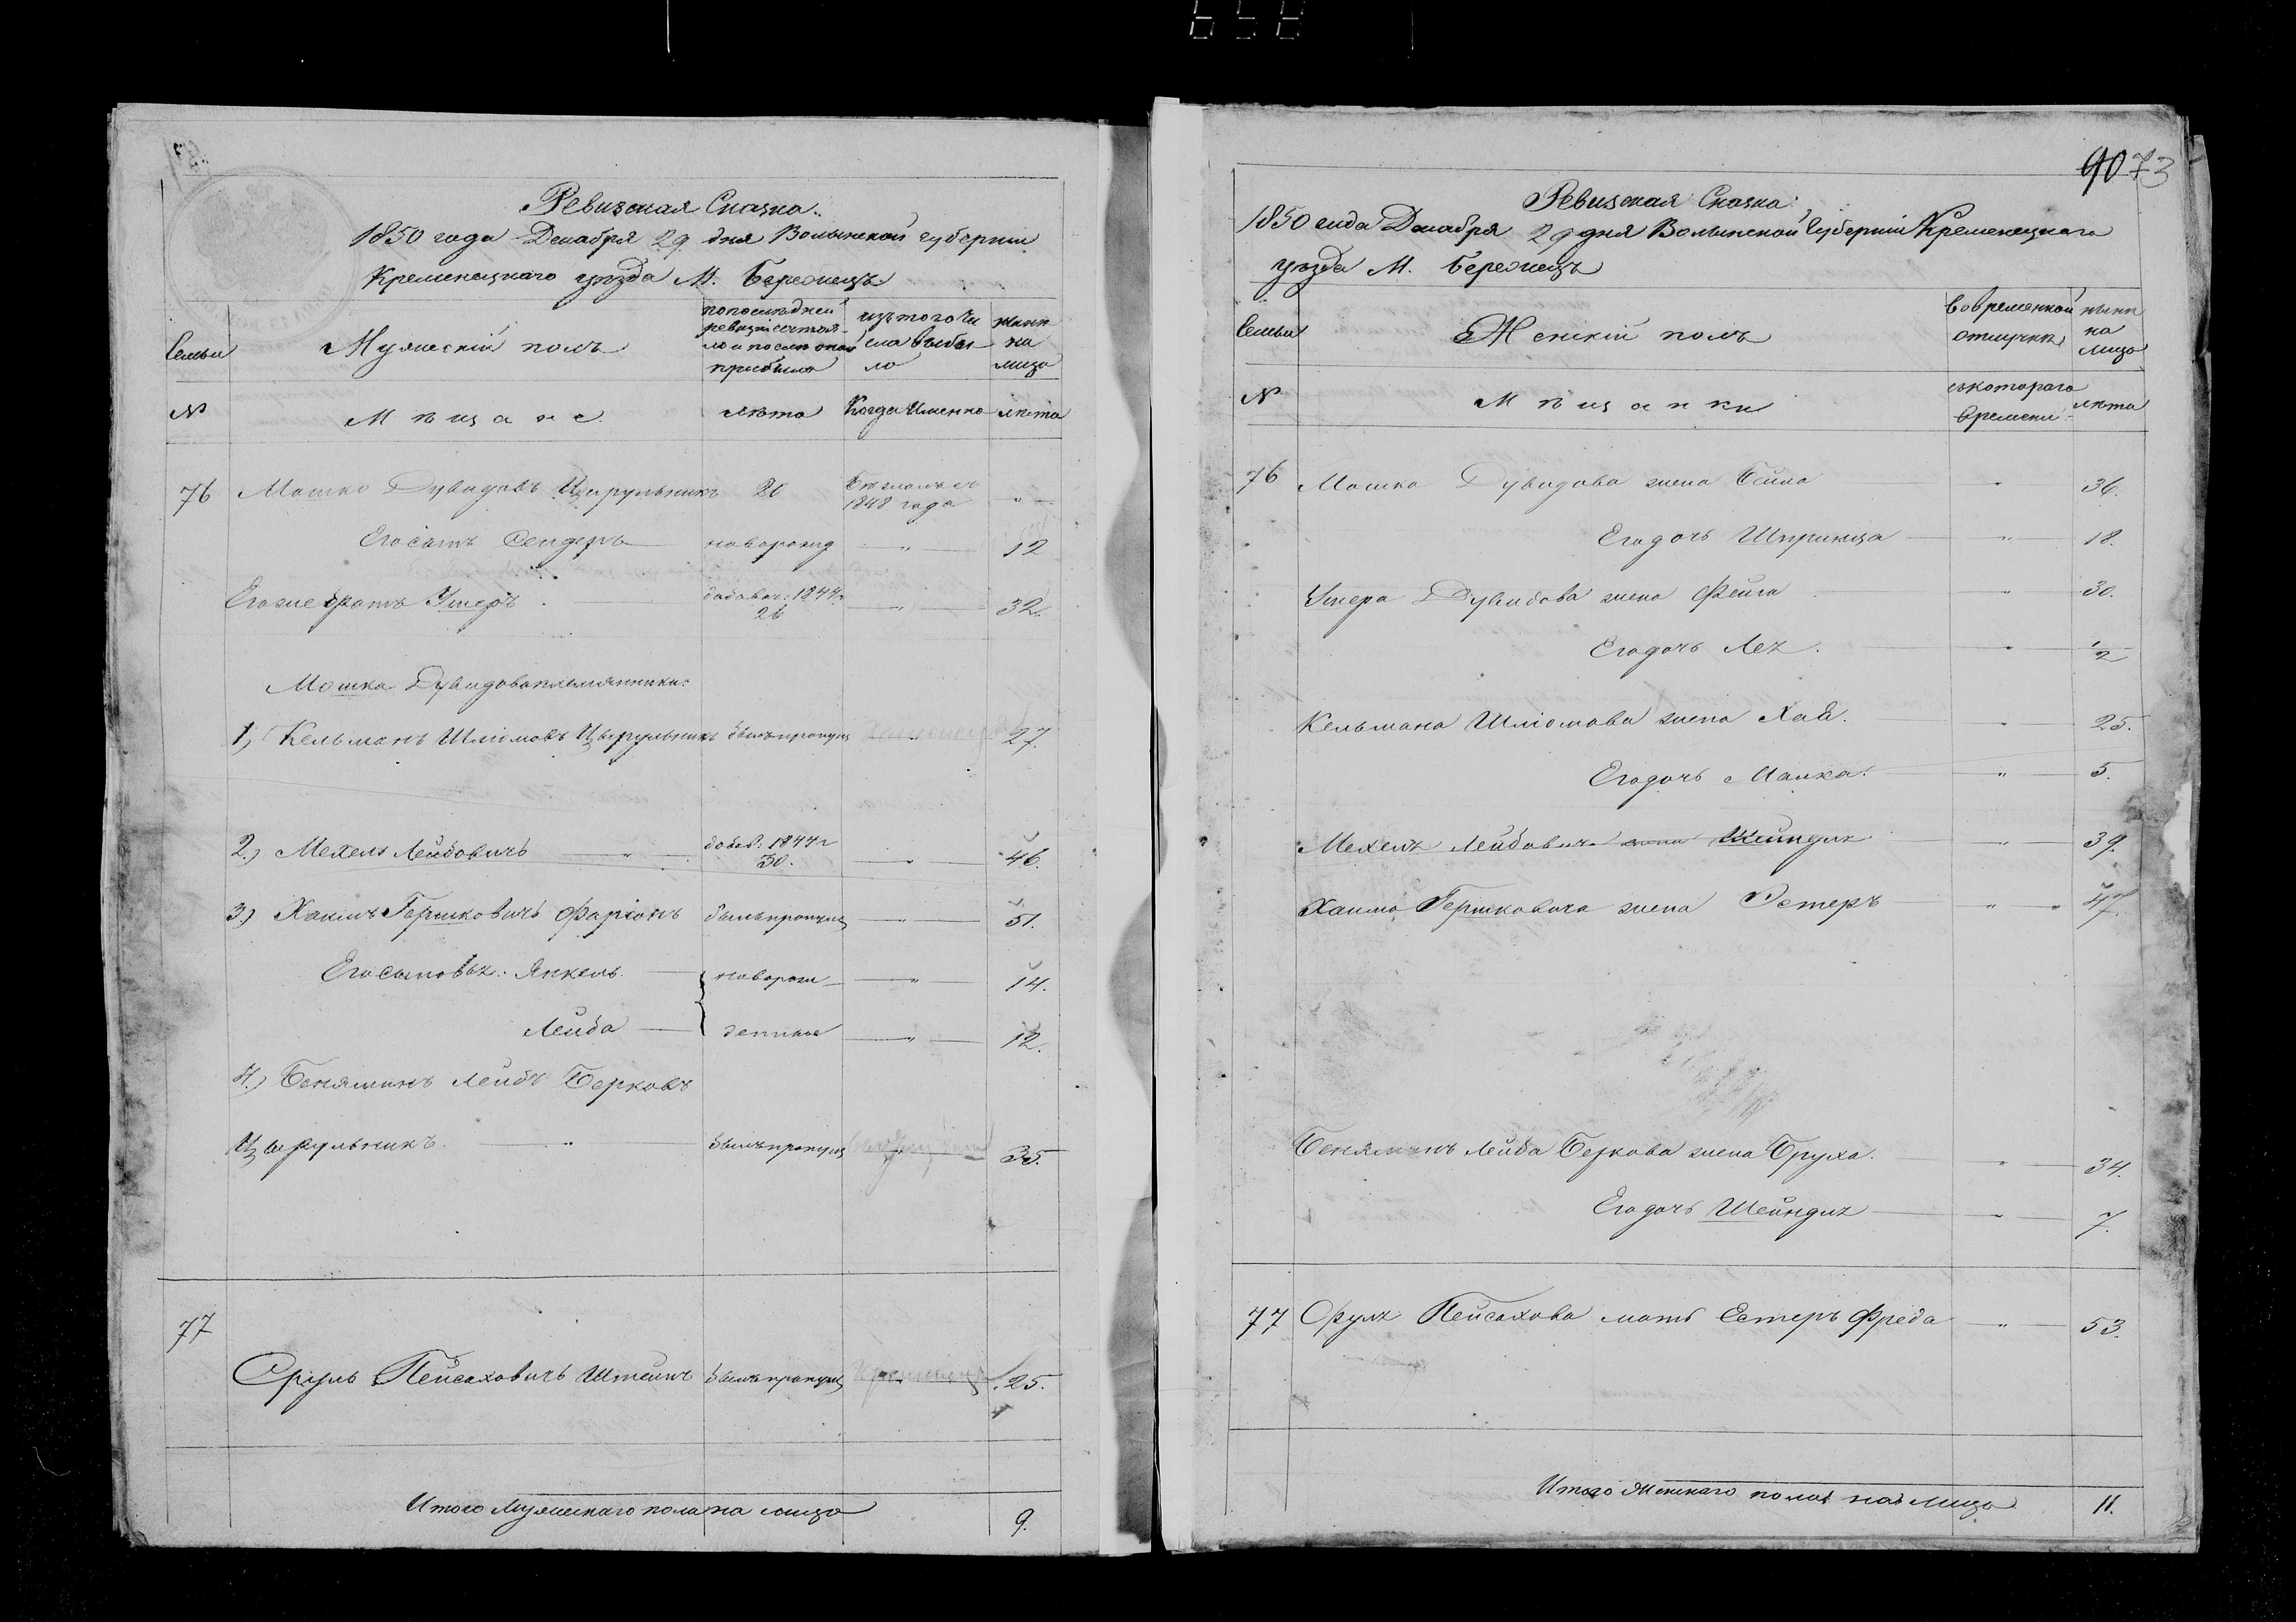 Ревизская Сказка.
1850 года Декабря 29 дня Волынской губернии
Кременецкаго уезда М. Бережецъ
Семьи
Мужескій полъ
по последней
ревизіи состоя-
ло и после оной
прибыло
изъ того чи
сла выбы
ло
ныне
на
лицо
№
Мѣщане
лѣта
Когда Именно
лѣта
76 Мошко Дувидовъ Цырульникъ 20
1848 года "
Его сынъ Сендеръ новорожд " 12
Его же братъ Умеръ добавоч: 1844г
26 " 32.
Мошка Дувидова племянники:
1) Кельманъ Шліомовъ Цырульникъ былъ пропущ " 27.
2.) Мехель Лейбовичъ " добав: 1844г
30. " 46.
3.) Хаимъ Гершковичъ Фаріонъ былъ пропущ " 51.
Его сыновья: Янкель новорож " 14.
Лейба денные " 12.
4.) Беняминъ Лейбъ Берковъ
Цырульникъ " былъ пропущ 35.
77
Сруль Пейсаховичъ Штейнъ былъ пропущ 25.
Итого Мужескаго пола на лицо 9.
90 73
Ревизская Сказка
1850 года Декабря 29 дня Волынской Губерніи Кременецкаго
уезда М. Бережецъ
Семьи
Женскій полъ
во временной
отлучке
ныне
на
лицо
№
Мѣщанки
съ котораго
времени
лѣта
76 Мошка Дувидова жена Бейла " 36.
Его дочь Шпринца " 18.
Дувидова жена Фейга " 30.
Его дочь Лея. " 2
Кельмана Шліомова жена Хая. " 25.
Его дочь Малка. " 5.
Мехеля Лейбовича жена Шейндля " 39.
Хаима Гершковича жена Эстеръ " 47.
Беняминъ Лейба Беркова жена Бруха. " 34.
Его дочь Шейндля " 7.
77 Сруля Пейсахова мать Естеръ Фреда " 53.
Итого Женскаго пола на лицо 11.